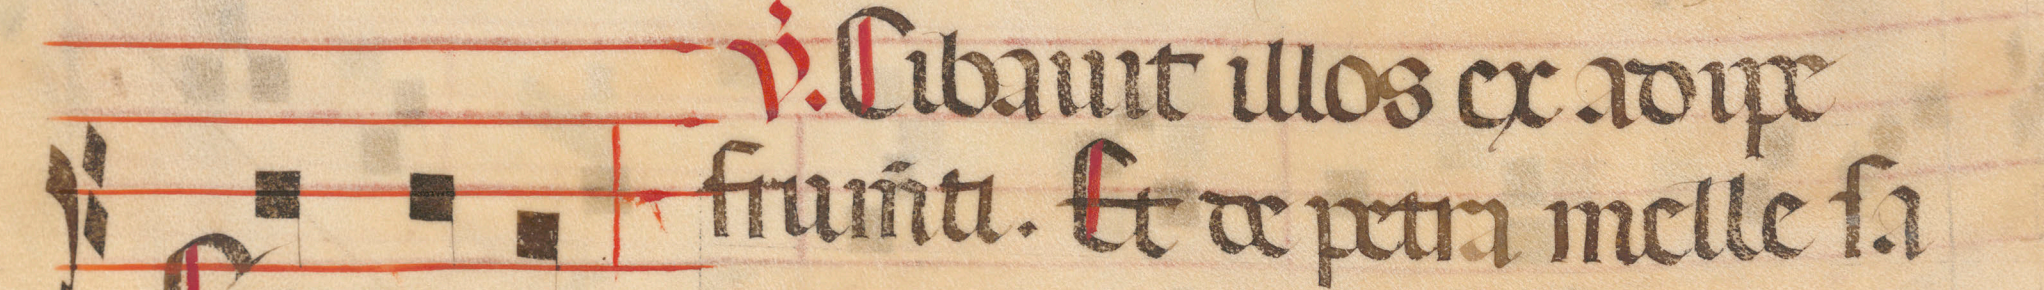 ℣. Cibauit illos ex adipe
frum̄ti. Et de petra melle sa